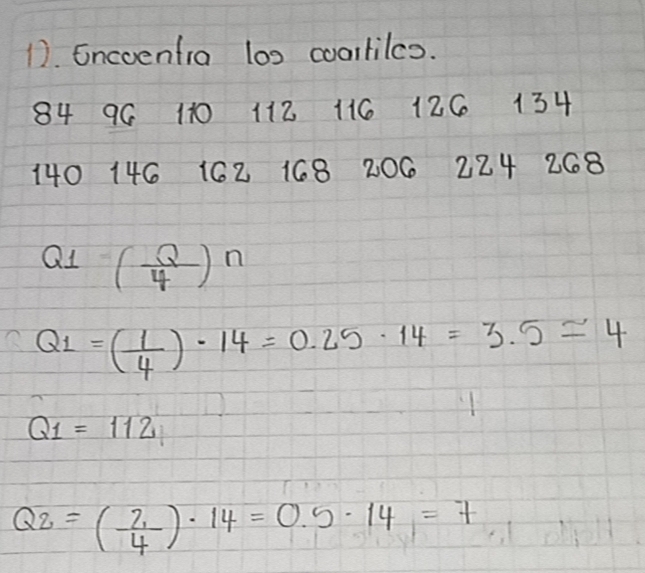 1). Encuentra los cuartiles.
84 96 110 112 116 126 134
140 146 162 168 206 224 268
Q1 (Q/4) n
Q1 = (1/4) · 14 = 0.25 · 14 = 3.5 = 4
Q1 = 112
Q2 = (2/4) · 14 = 0.5 · 14 = 7